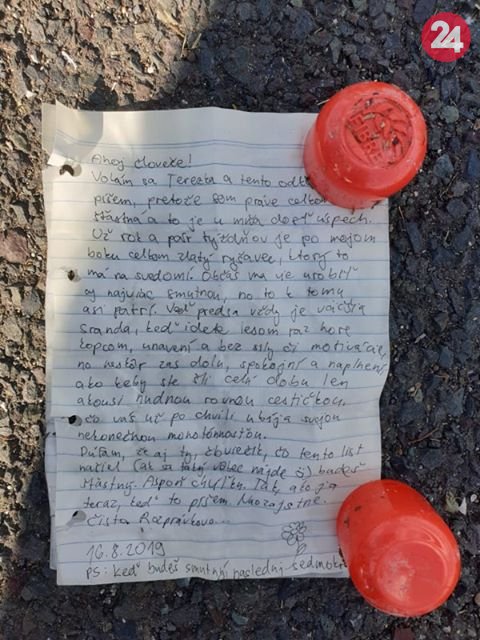 24
HERE
Ahoj človeče!
Volám sa Terezka a tento odk
píšem, pretože som práve celkom
šťastná a to je u mňa dosť úspech.
Už rok a pár týždňov je po mojom
boku celkom zlatý ryšavec, ktorý to
má na svedomí. Občas ma vie urobiť
aj najviac smutnou, no to k tomu
asi patrí. Veď predsa vždy je väčšia
sranda, keď idete lesom raz hore
kopcom, unavení a bez sily či motivácie,
no neskôr zas dolu, spokojní a naplnení
ako keby ste šli celú dobu len
akousi nudnou rovnou cestičkou,
čo vás už po chvíli ubíja svojou
nekonečnou monotónnosťou.
Dúfam, že aj ty, čo tento list
našiel (ak sa taký vôbec nájde :)) budeš
šťastný. Aspoň chvíľku. Tak, ako ja
teraz, keď to píšem. Naozajstne.
Čisto Rozprávkovo...
16.8.2019
PS: keď budeš smutný posleduj sedmokr